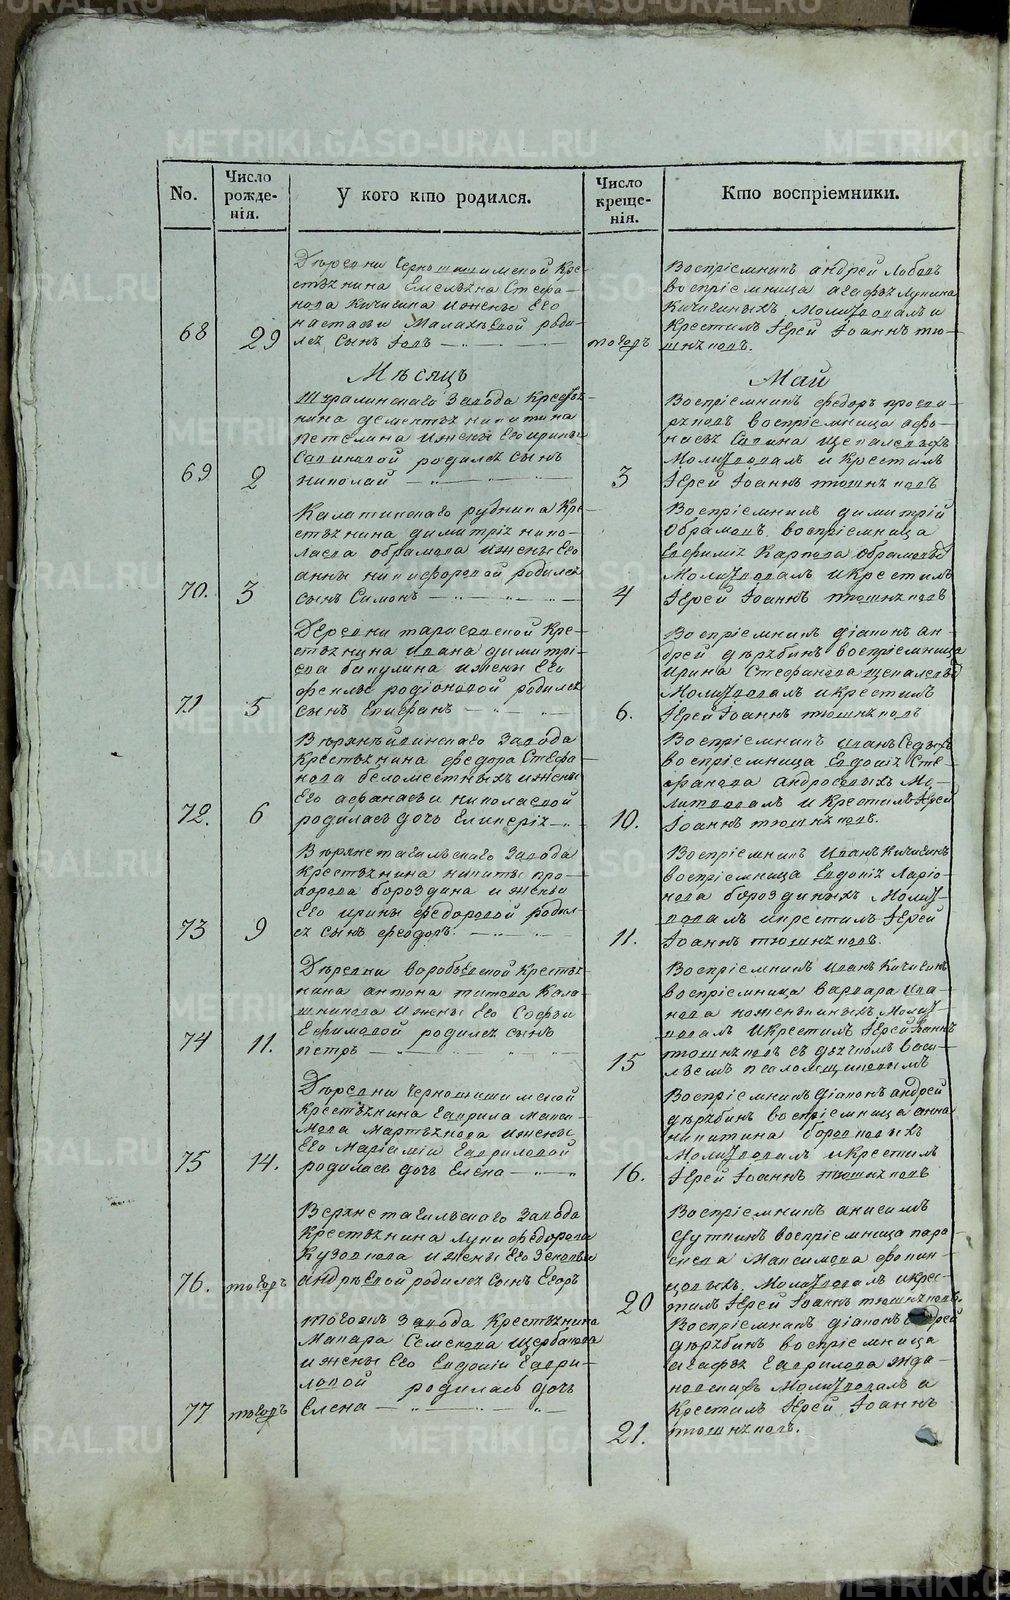 No.
Число рожденія.
У кого кто родился.
Число крещенія.
Кто воспріемники.
68
29
Деревни Черношишимской Кре-
стьянина Емельяна Стефа-
нова Кичигина и жены его
настасьи Малахѣевой роди-
лся сынъ Іовъ
тогожъ
Воспріемникъ андрей Лобовъ
воспріемница агафья Лукина
Кичигиныхъ. Молитвовалъ и
Крестилъ Іерей Іоаннъ тю-
шняковъ.
Мѣсяцъ
Май
69
2
Шуралинскаго завода Крестья-
нина дементья никитина
петелина и жены его ирины
Савиновой родился сынъ
николай
3
Воспріемникъ федоръ
воспріемница афо-
насья Савина
Молитвовалъ и Крестилъ
Іерей Іоаннъ тюшняковъ
70.
3
Калатинскаго рудника Кре-
стьянина димитрія нико-
лаева обрамова и жены его
анны никифоровой родился
сынъ Симонъ
4
Воспріемникъ димитрій
Обрамовъ воспріемница
Евфимія Карпова Обрамовы
Молитвовалъ и Крестилъ
Іерей Іоаннъ тюшняковъ
71
5
Деревни тарасовской Кре-
стьянина Ивана димитрі-
ева бакулина и жены его
феклы родіоновой родился
сынъ Епифанъ
6.
Воспріемникъ діаконъ ан-
дрей дерябинъ воспріемница
Ирина Стефанова
Молитвовалъ и крестилъ
Іерей Іоаннъ тюшняковъ
72.
6
Верхнейвинскаго завода
Крестьянина федора Стефа-
нова беломестныхъ и жены
его афанасьи николаевой
родилась дочь Гликерія
10.
Воспріемникъ иванъ Седыхъ
воспріемница Евдокія Сте-
фанова андросовыхъ Мо-
литвовалъ и Крестилъ Іерей
Іоаннъ тюшняковъ.
73
9
Верхнетагильскаго завода
Крестьянина никиты про-
хорова бороздина и жены
его ирины федоровой родил-
ся сынъ феодоръ.
11.
Воспріемникъ Иванъ Кичигинъ
воспріемница Евдокія Ларіо-
нова бороздиныхъ Молит-
вовалъ и крестилъ Іерей
Іоаннъ тюшняковъ.
74
11.
Деревни воробьевской Крестья-
нина антона титова Кала-
шникова и жены его Софьи
Ефимовой родился сынъ
петръ
15
Воспріемникъ иванъ Кичигинъ
воспріемница варвара ива-
нова кожевниковыхъ Молит-
вовалъ и Крестилъ Іерей Іоаннъ
тюшняковъ съ дьячкомъ васи-
льемъ псаломщиковымъ
75
14.
Деревни Черношишимской
Крестьянина гаврила макси-
мова мартьянова и жены
его Маріаміи гавриловой
родилась дочь Елена
16.
Воспріемникъ діаконъ андрей
дерябинъ воспріемница анна
никитина
Молитвовалъ и Крестилъ
Іерей Іоаннъ тюшняковъ
76.
тогожъ
Верхнетагильскаго завода
Крестьянина Луки федорова
Кузовкова и жены его
андреевой родился сынъ Егоръ
20
Воспріемникъ анисимъ
воспріемница пара-
скева Максимова
Молитвовалъ и крес-
тилъ Іерей Іоаннъ тюшняковъ.
77
тогожъ
тогожъ завода Крестьянина
Макара Семенова щербакова
и жены его Евдокіи гаври-
ловой родилась дочь
Елена
21.
Воспріемникъ діаконъ андрей
дерябинъ воспріемница
агафья гаврилова жда-
новскихъ Молитвовалъ и
Крестилъ Іерей Іоаннъ
тюшняковъ.
METRIKI.GASO-URAL.RU